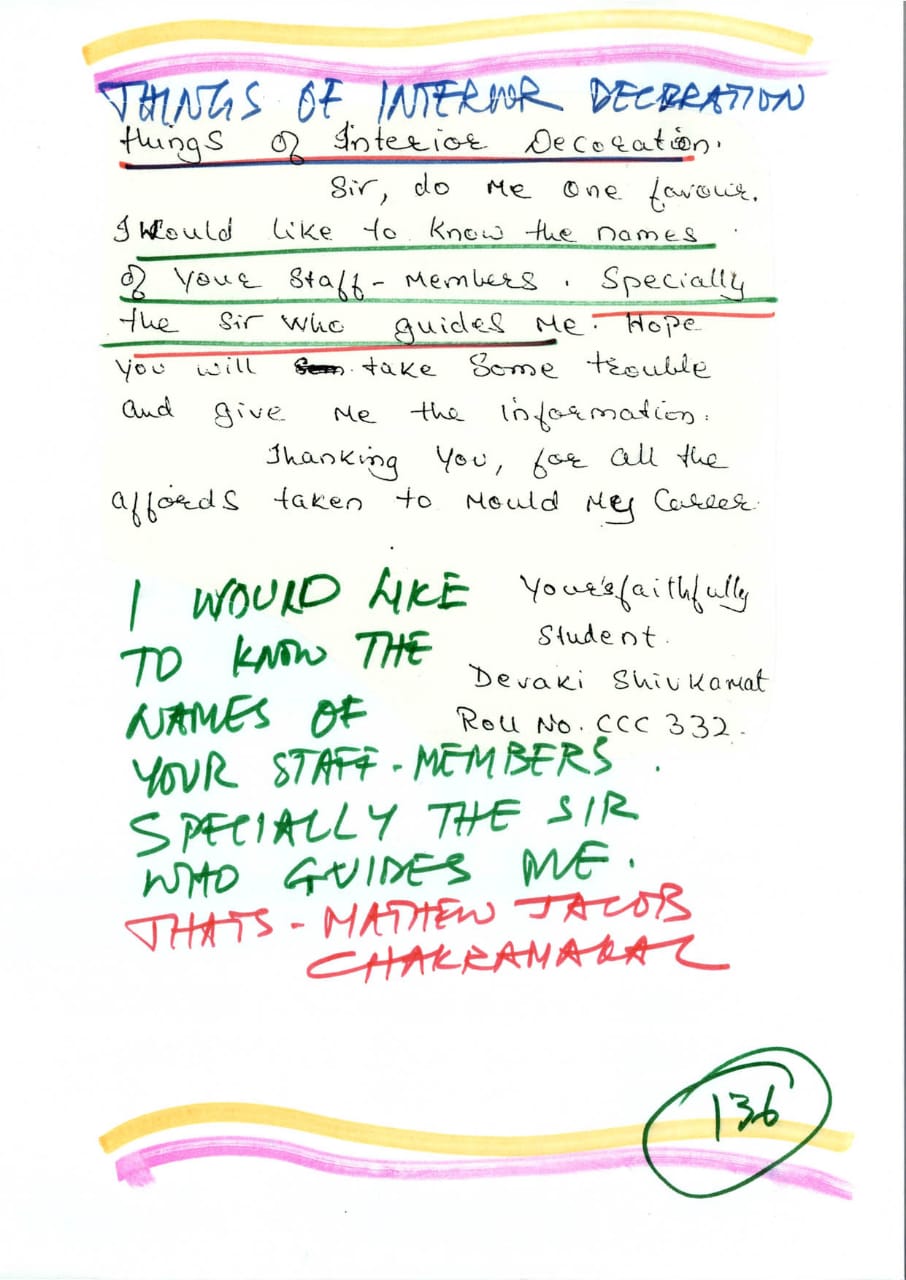 THINGS OF INTERIOR DECORATION
things of Interior Decoration.
Sir, do me one favour.
I would like to know the names
of your Staff-members. Specially
the sir who guides me. Hope
you will take some trouble
and give me the information.
Thanking you, for all the
affords taken to mould my career.
I WOULD LIKE
TO KNOW THE
NAMES OF
YOUR STAFF-MEMBERS.
SPECIALLY THE SIR
WHO GUIDES ME.
THATS - MATHEW JACOB
Your'sfaithfully
Student.
Devaki Shivkamat
Roll No. CCC 332.
136